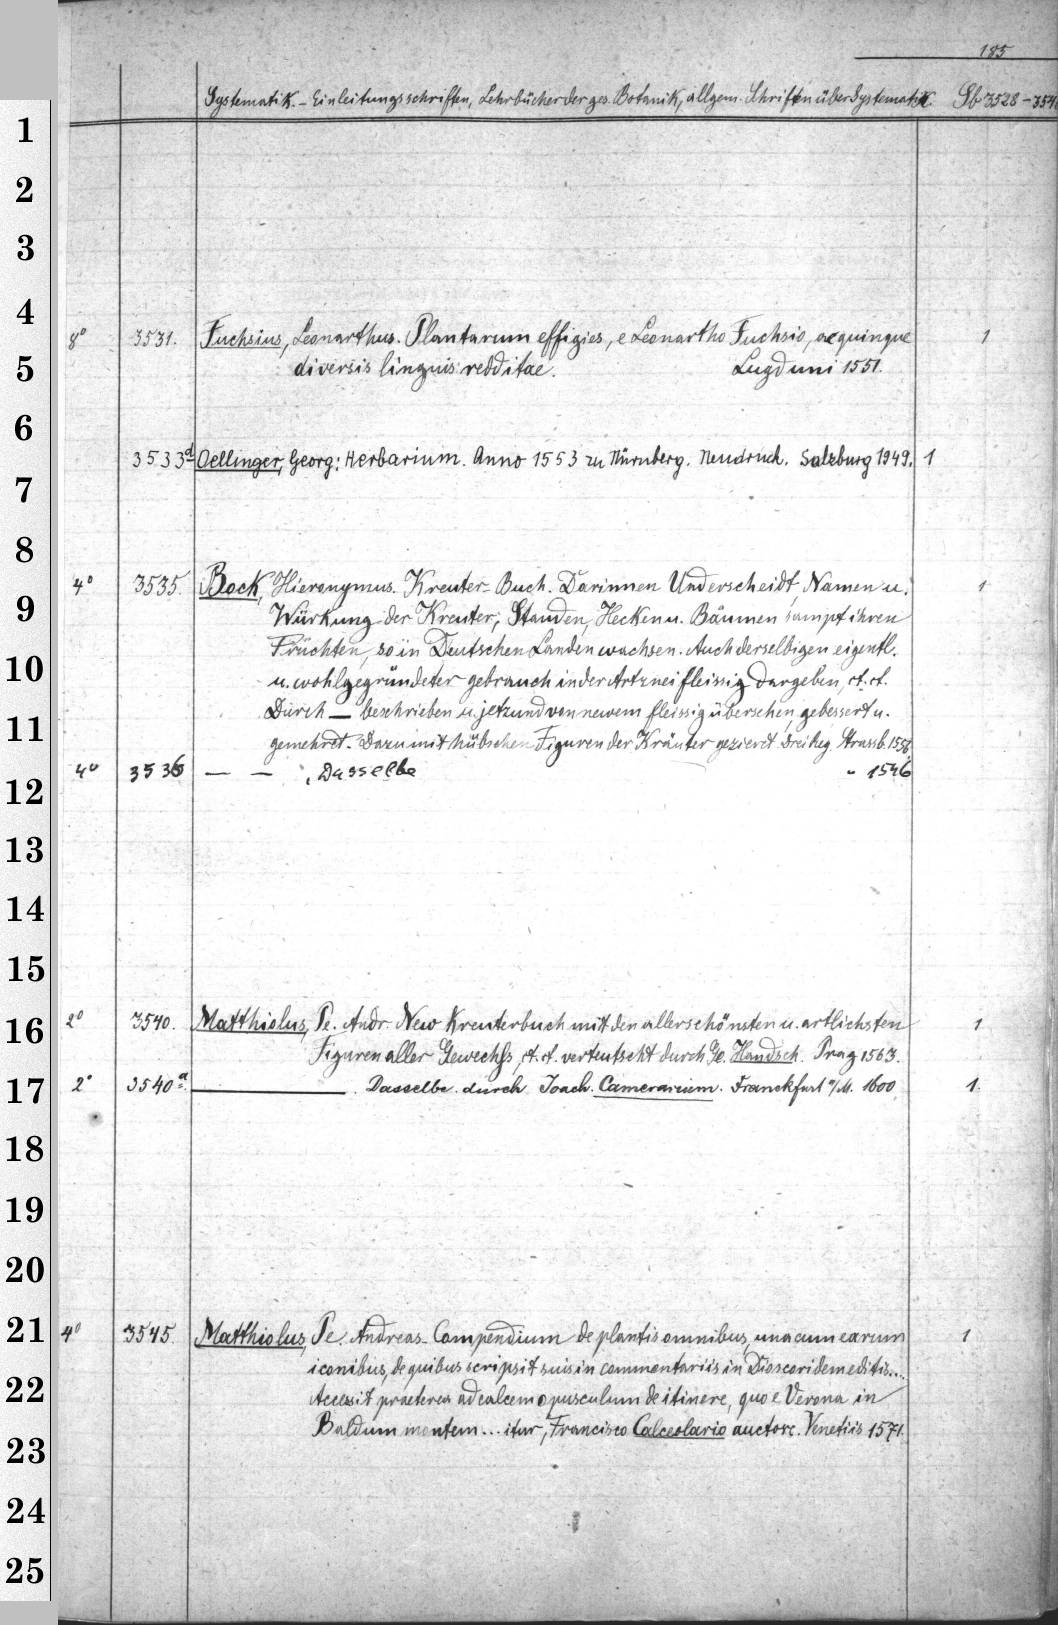 185
Systematik. - Einleitungsschriften, Lehrbücher der ges. Botanik, allgem. Schriften über Systematik. Sb 3528 - 354
1
2
3
4
8° 3531. Fuchsius, Leonarthus. Plantarum effigies, e Leonartho Fuchsio, ac quinque 1
5 diversis linguis redditae. Lugduni 1551.
6
3533a Oellinger, Georg: Herbarium. Anno 1553 zu Nürnberg. Neudruck. Salzburg 1949. 1
7
8
4° 3535. Bock, Hieronymus. Kreuter-Buch. Darinnen Underscheidt, Namen u. 1
9 Würkung der Kreuter, Standen, Hecken u. Bäumen sampt ihren
Früchten, so in Deutschen Landen wachsen. Auch derselbigen eigentl.
10 u. wohlgegründeter gebrauch in der Artznei fleissig dargeben, et. et.
11 Durch — beschrieben u. jetzund von newem fleissig übersehen, gebessert u.
gemehret. Dazu mit hübschen Figuren der Kräuter gezieret Strassb. 1556.
4° 3536 — — , Dasselbe " 1546
12
13
14
15
2° 3540. Matthiolus, Pe. Andr. New Kreuterbuch mit den allerschönsten u. artlichsten 1
16 Figuren aller Gewechss, et. et. verteutscht durch Ge. Handsch. Prag 1563.
17 2° 3540a. — . Dasselbe durch Joach. Camerarium. Franckfurt a/M. 1600. 1.
18
19
20
21 4° 3545. Matthiolus, Pe. Andreas. Compendium de plantis omnibus, una cum earum 1
iconibus, de quibus scripsit suis in commentariis in Dioscoridem editis....
22 Accessit praeterea ad calcem opusculum de itinere, quo e Verona in
23 Baldum montem... itur, Francisco Calceolario auctore. Venetiis 1571.
24
25